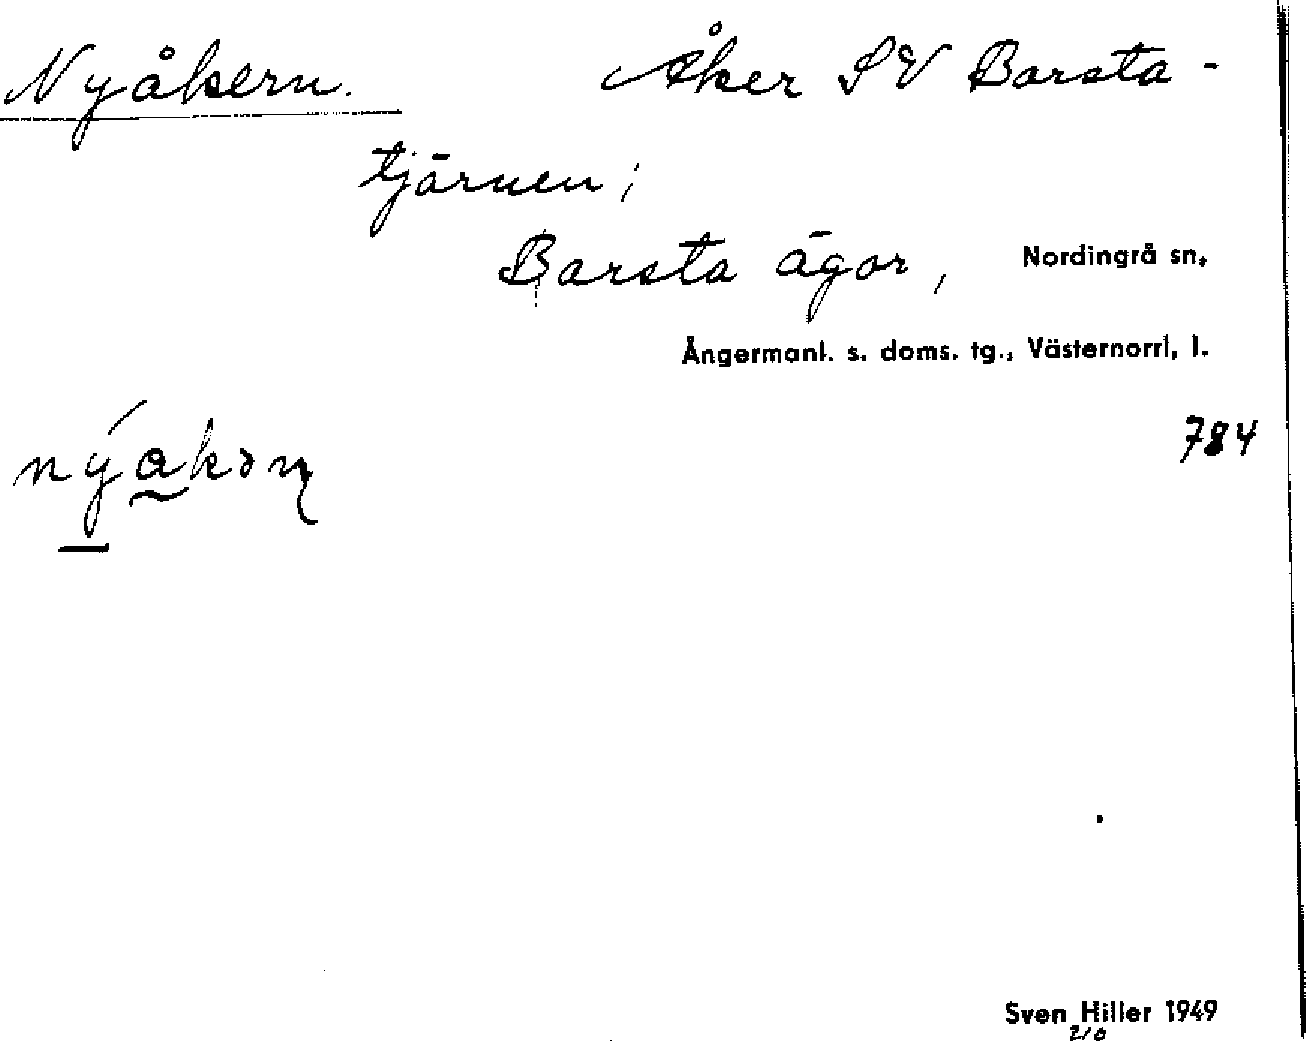 Nyåkern. Åker SV Barsta-
tjärnen;
Barsta ägor, Nordingrå sn,
Ångermanl. s. doms. tg., Västernorrl. l.
784
Sven Hiller 1949